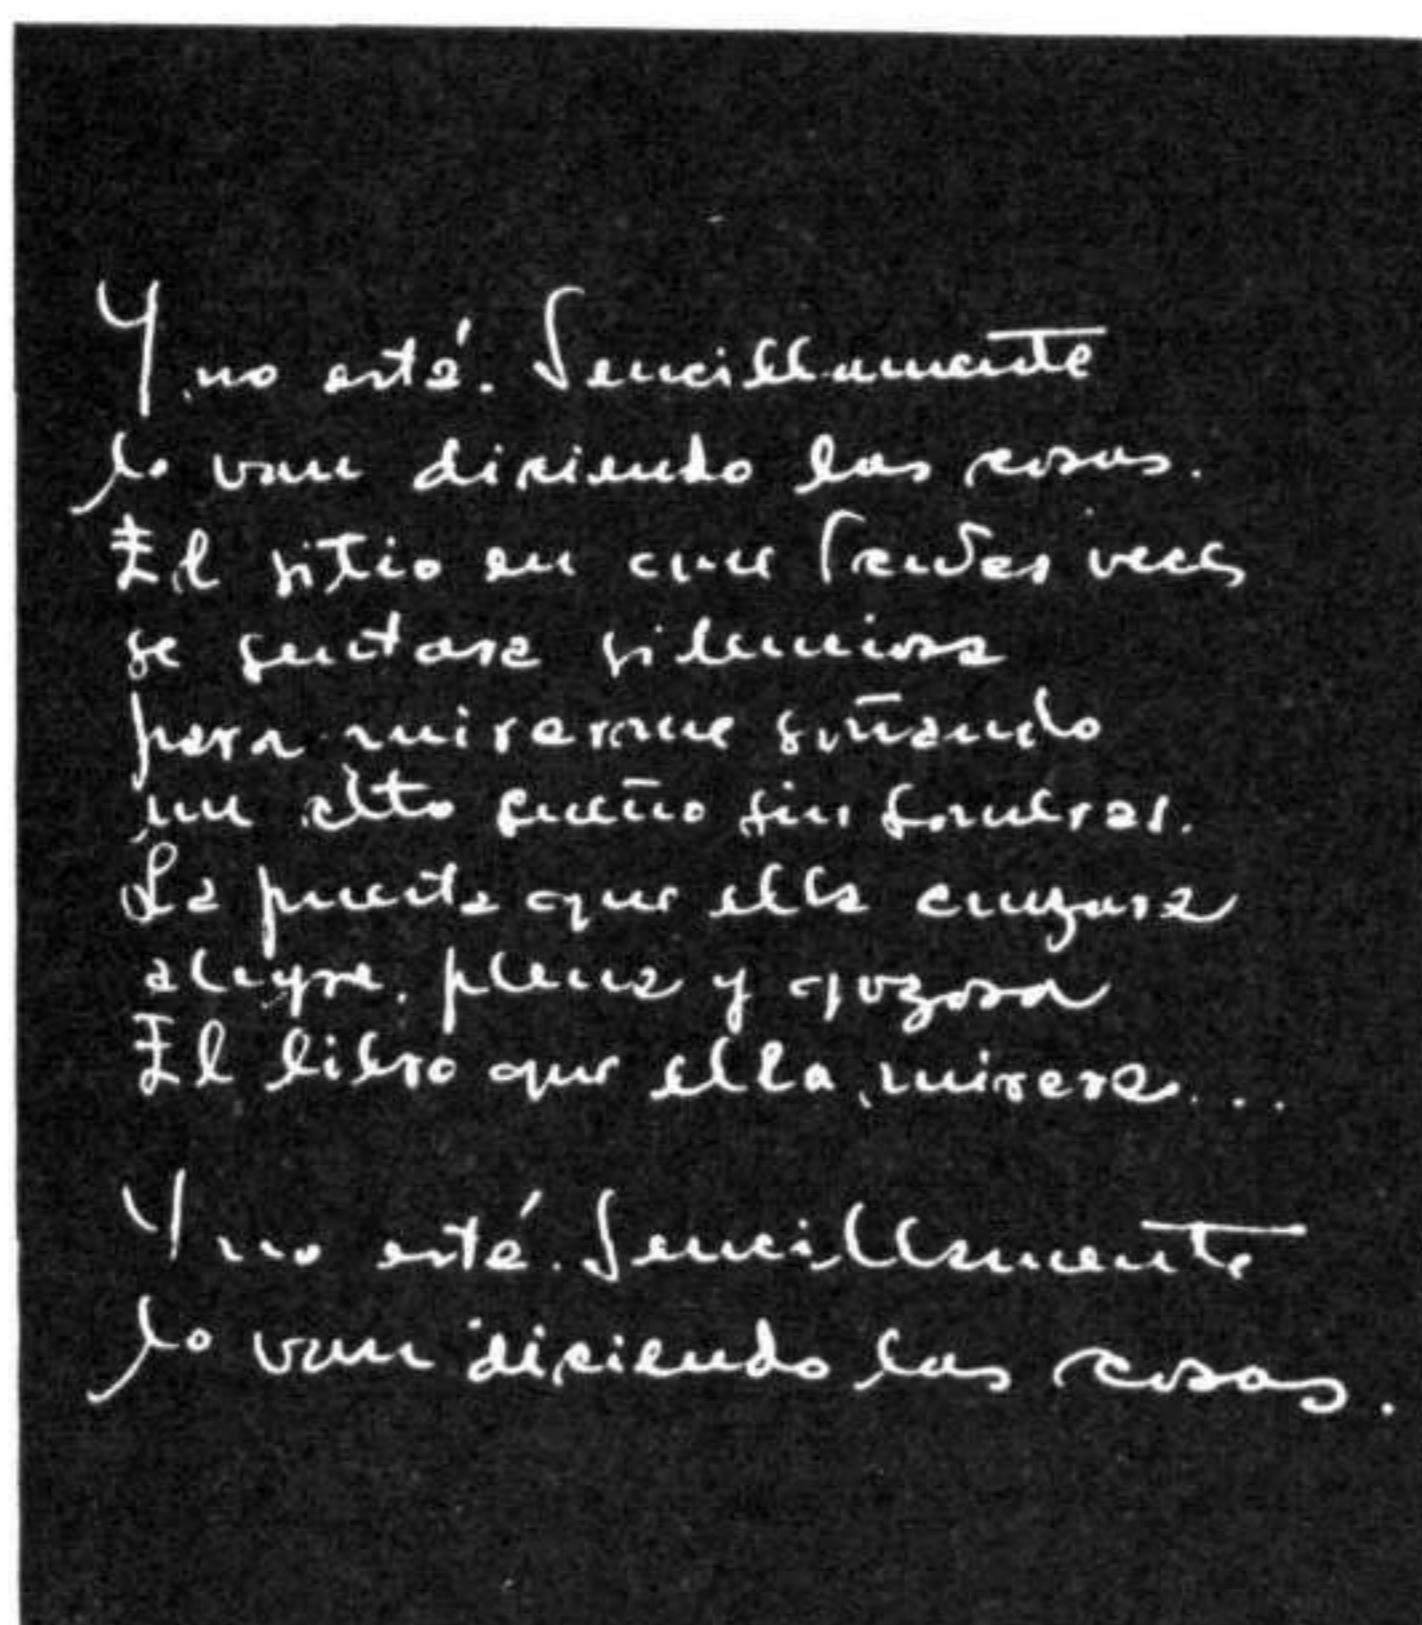 Y no está. Sencillamente
lo van diciendo las cosas.
El sitio en que tantas veces
se sentara silenciosa
para mirarme soñando
un alto sueño sin sombras.
La puerta que ella cruzara
alegre, plena y gozosa
El libro que ella mirara...
Y no está. Sencillamente
lo van diciendo las cosas.